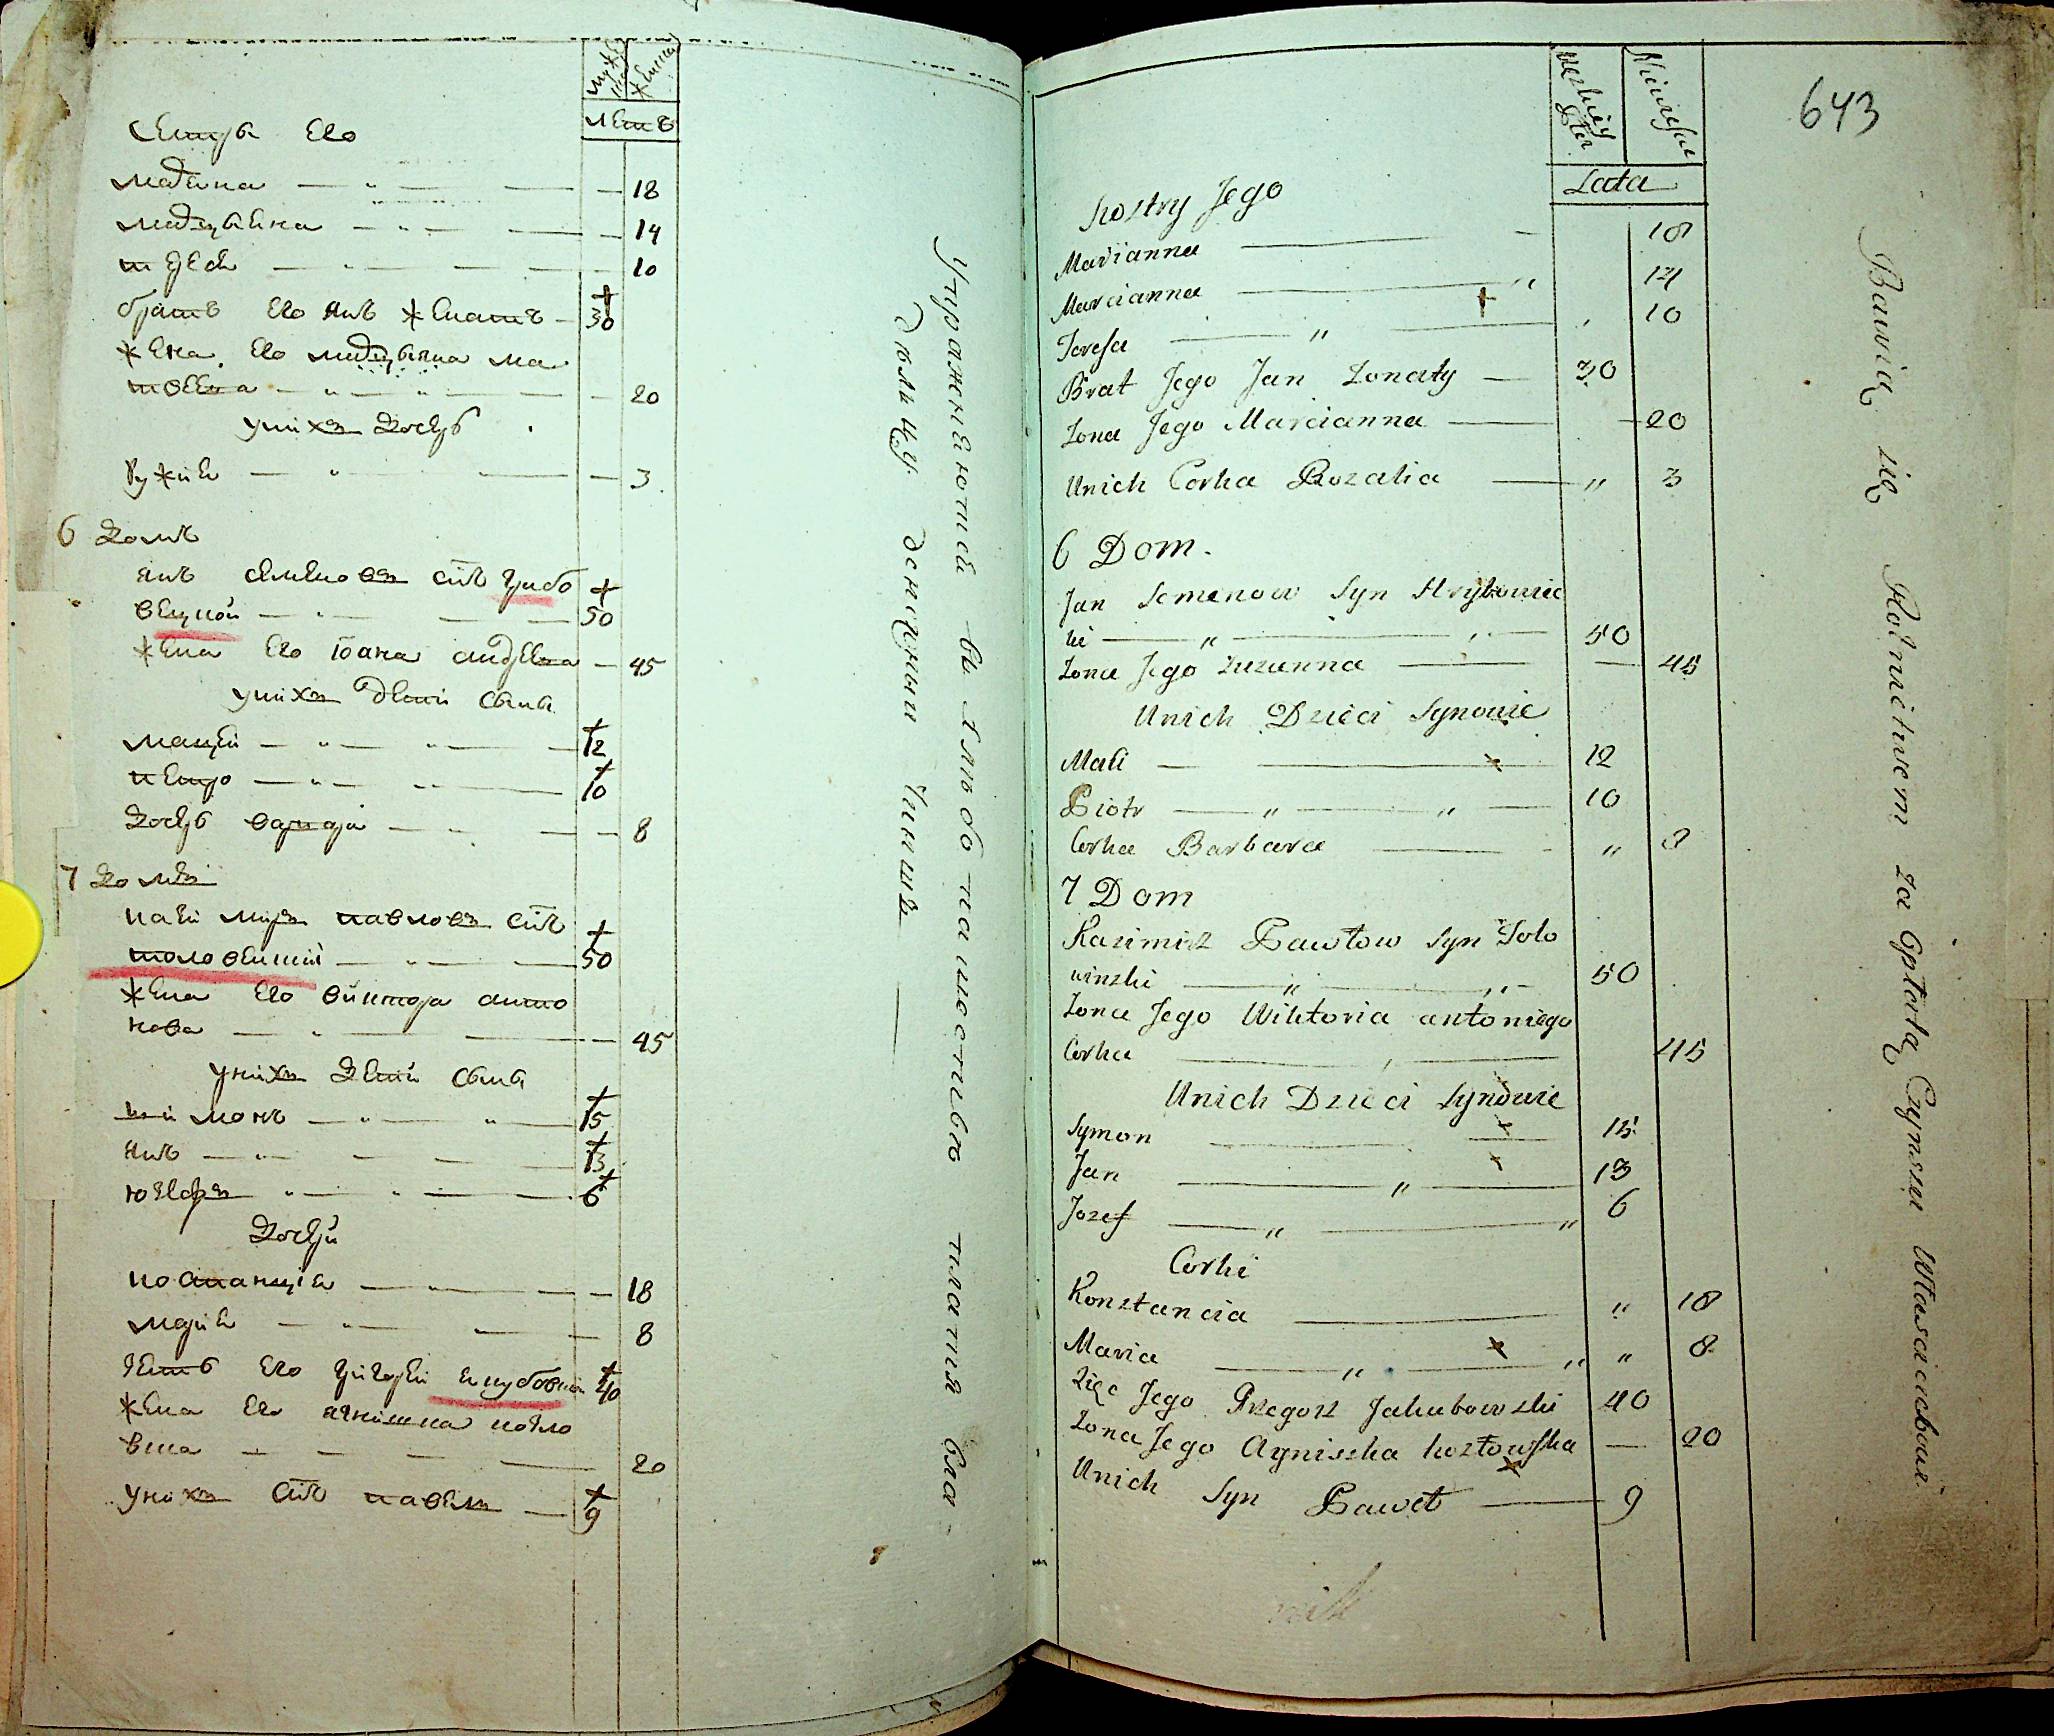 лѣтъ
сестры его
18
14
10
братъ его янъ женатъ — 30
жена его
20
у нихъ дочерь
3
6 домъ
янъ семеновъ сынъ грибо
вецкой — 50
жена его андрева — 45
у нихъ дети сыны
мацей — 12
петро — 10
дочерь варвара — 8
7 домъ
павловъ сынъ
толовенский — 50
жена его виктора анто
нова — 45
у нихъ дети сыны
шимонъ — 15
янъ — 13
юзефъ — 6
дочери
констанция — 18
мария — 8
зеть его григорей якубовски 40
жена его агнишка козло
вска — 20
у нихъ сынъ павелъ — 9
Упражнѣютсѣ въ хлѣбопашествѣ платя вла-
дѣльцу денежный чиншъ
643
Lata
Siostry Jego
Marianna — 18
Marcianna — 14
Teresa — " — 10
Brat Jego Jan Żonaty — 30
Żona Jego Marcianna — 20
Unich Corka Rozalia — " 3
6 Dom.
Jan Semenow Syn Hrybowic
ki — " — 50
Żona Jego Zuzanna — 45
Unich Dzieci Synowie
Mati — 12
Piotr — " — " — 10
Corka Barbara — " 8
7 Dom
Kazimirz Pawłow Syn Toło
winski — " — 50
Żona Jego Wiktoria antoniego
Corka — 45
Unich Dzieci Synowie
Symon — 15
Jan — " — 13
Jozef — " — " 6
Corki
Konstancia — " 18
Maria — " — " " 8
Zięc Jego Grzegorz Jakubowski 40
Żona Jego Agniszka kozłowska — 20
Unich Syn Paweł — 9
Bawią się Rolnictwem za Opłatą Czynszu Własciciełowi